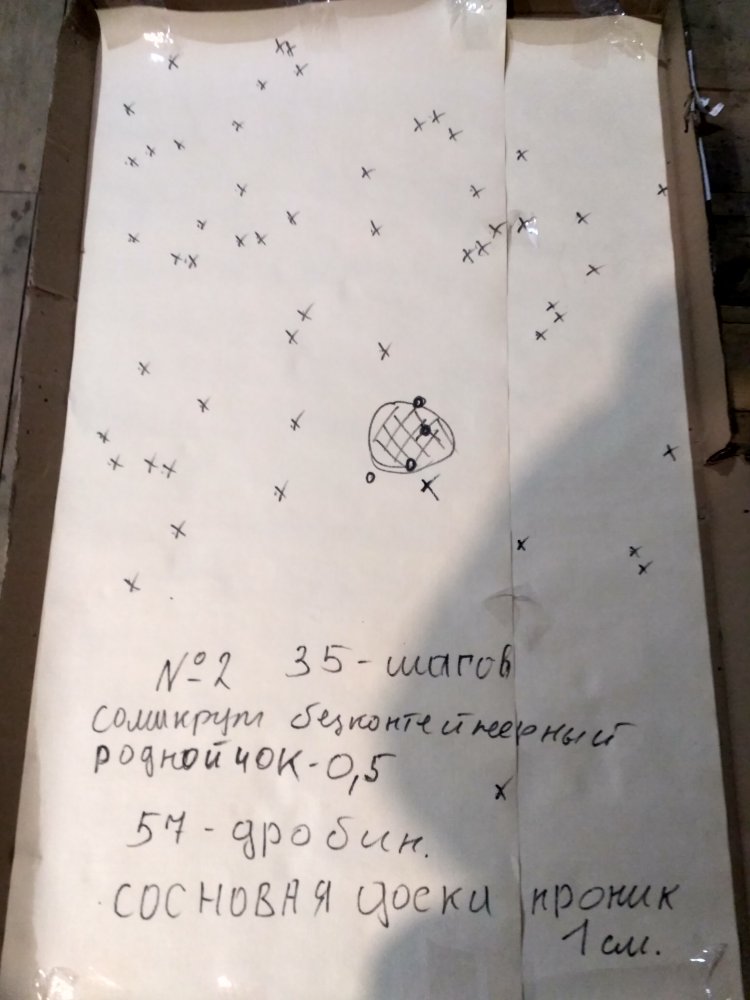 №2 35-шагов
сомикруп безконтейнерный
родной чок-0,5
57-дробин.
СОСНОВАЯ доски проник
1 см.